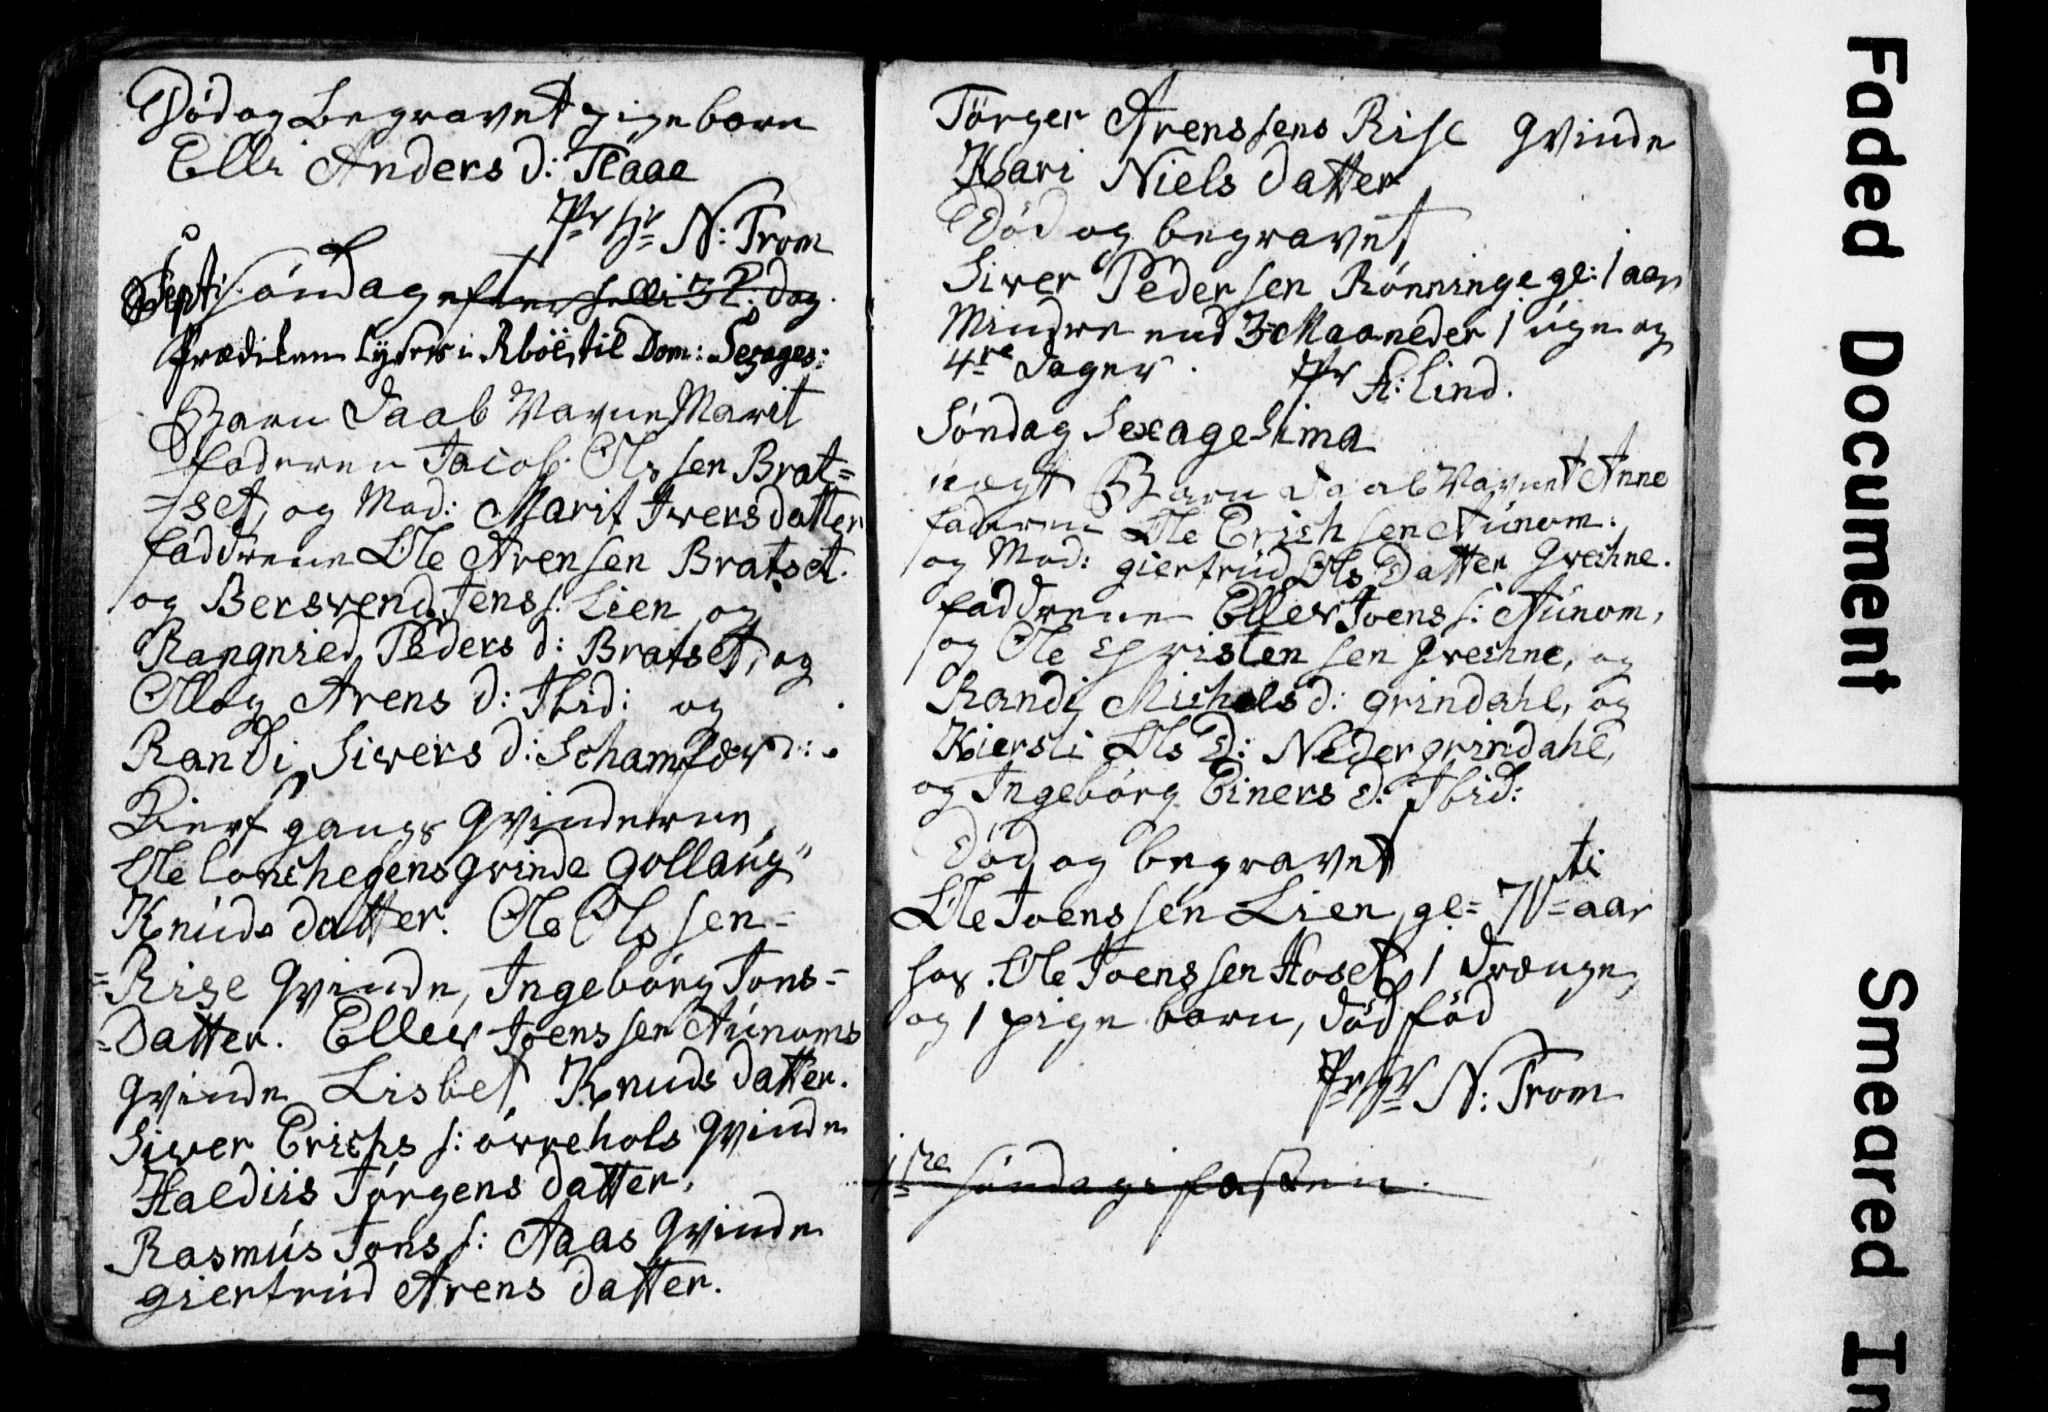 Död og Begravet pigebarn
Elli Anders d: Flaae
Pr Hr N: Trom
Septi: Söndag efter Helli 3 K. dag.
Prædiken Lyses i Rböe, til Dom: Sexages:
Barn Daab Navne Marit
faderen Jacob Ols sen Brat=
=set, og Mod: Marit Iversdatter
faddrene Ole Arensen Bratset.
og Bersvend Jens s: Lien og
Rangnied Peders d: Bratset, og
Ollog Arens d: Ibid: og
Randi Sivers d: Schamfær
Kierkgangs Qvinderne,
Ole Lonchegens qvinde Gollaug
Knuds datter. Ole Ols sen=
=Rise Qvinde, Ingeborg Jons=
=Datter. Ellev Joens sen Aunoms
Qvinde Lisbet Knuds datter.
Siver Erichs s: övrehols Qvinde
Haldiis Jörgens datter,
Rasmus Jons s: Aaas Qvinde
giertrud Arens datter.
Törger Arens sens Rise Qvinde
Kari Niels datter
Död og begravet
Siver Peder sen Rönninge gl: 1 aar
Mindre end 3 Maaneder 1 uge og
4re Dager. Pr A: Lind.
Söndag Sexagesima
Barn Daab Navnet Anne
faderen Ole Erich sen Aunom:
og Mod: giertrud Ols Datter Qveine.
faddrene Ellev Joens s: Aunom,
og Ole Christen sen Qveine, og
Randi Michels d: Grindahl, og
Kiersti Ols D: Neder grindahl,
og Ingeborg Einers d: Ibid:
Död og begravet
Ole Joens sen Lien, gl= 70ti= aar
hos. Ole Joens sen Hoset, 1 Drenge,
og 1 pige barn, död föd
Pr Hr N: Trom
1ste Söndag i fasten.
Faded Document
Smeared In